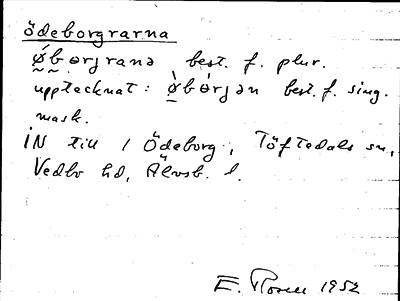 ödeborgrarna
ǿbɵrjranə best. f. plur.
upptecknat: ø̀bɵ́rjən best. f. sing.
mask.
IN till 1 Ödeborg, Töftedals sn,
Vedbo hd, Älvsb. l.
E. Rosell 1952